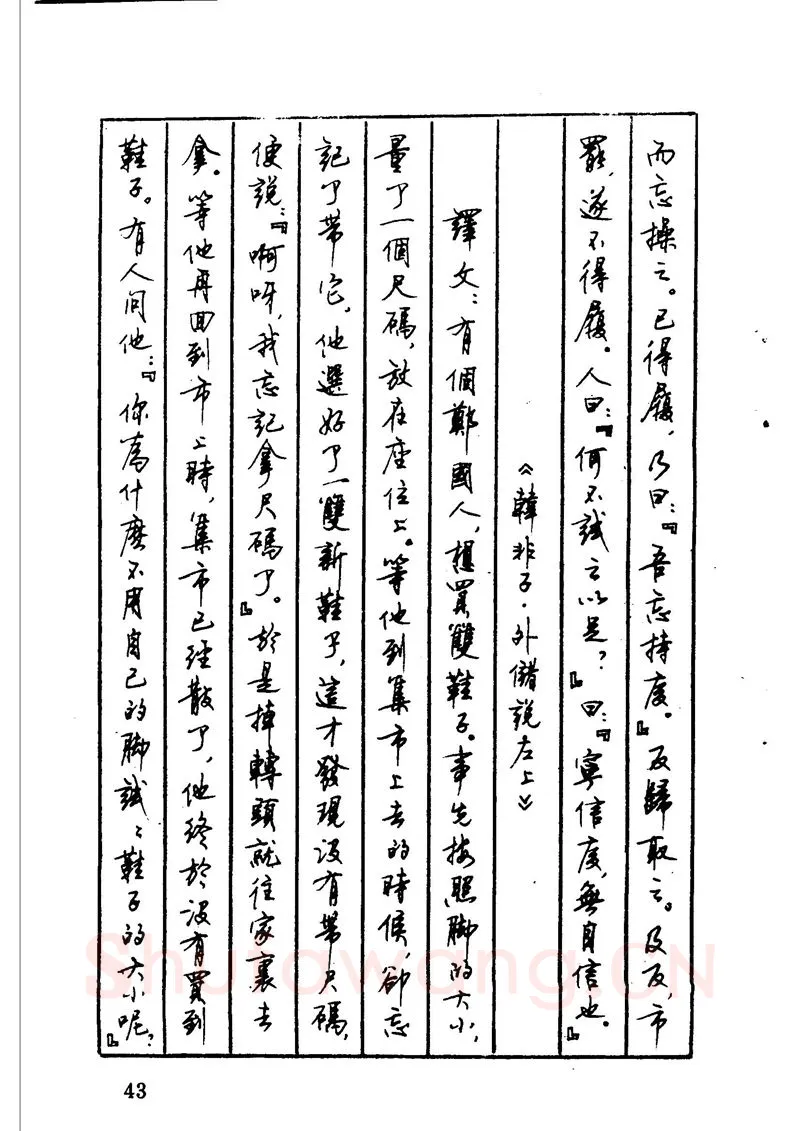 而忘操之。已得履，乃曰：『吾忘持度。』反歸取之。及反，市
罷，遂不得履。人曰：『何不試之以足？』曰：『寧信度，無自信也。』
《韓非子·外儲說左上》
譯文：有個鄭國人，想買雙鞋子。事先按照脚的大小，
量了一個尺碼，放在座位上。等他到集市上去的時候，卻忘
記了帶它，他選好了一雙新鞋子，這才發現沒有帶尺碼，
便說：『啊呀，我忘記拿尺碼了。』於是掉轉頭就往家裏去
拿。等他再回到市上時，集市已經散了，他終於沒有買到
鞋子。有人问他：『你為什麽不用自己的脚試試鞋子的大小呢？』
43
Shufawang.CN